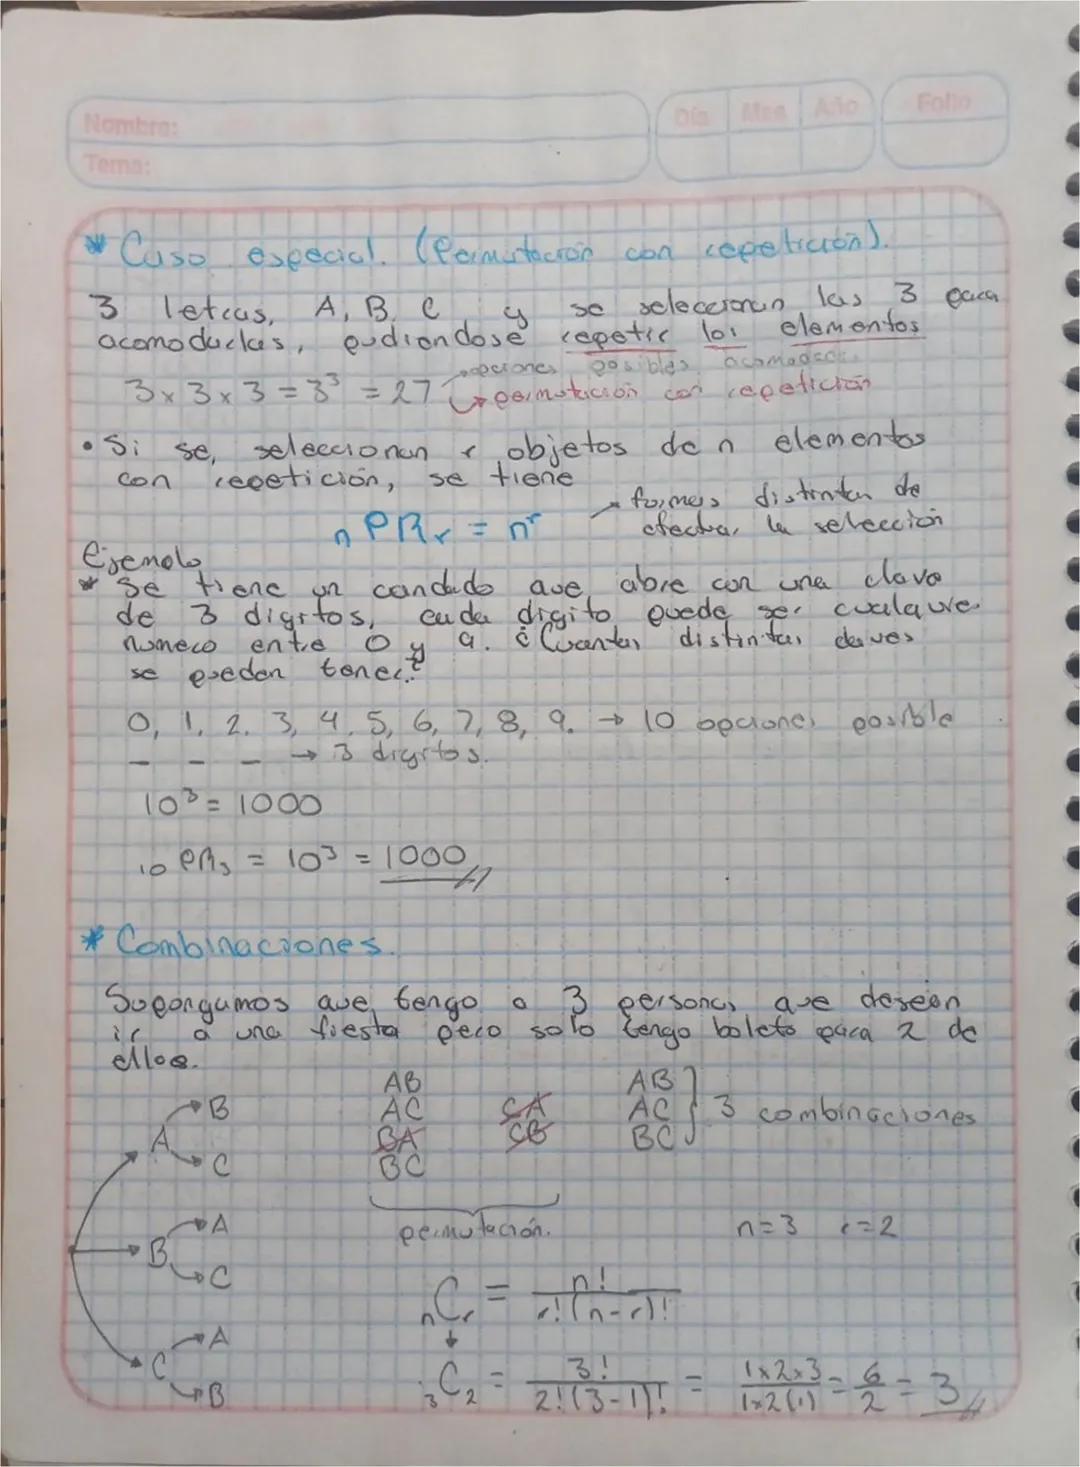 Nombre:
Tema:
Día Mes Año
Folio
* Caso especial. (Permutación con repetición).
3 letras, A, B, C y se seleccionan las 3 para
acomodarlas, pudiondose repetir los elementos
3 x 3 x 3 = 3³ = 27 → opciones posibles acomodadas
→ permutación con repetición
• Si se, seleccionan r objetos de n elementos
con repetición, se tiene
nPRr = nʳ → formas distintas de
efectuar la selección
Ejemplo
* Se tiene un candado que abre con una clave
de 3 digitos, cada digito puede ser cualquier
numero entre 0 y 9. ¿Cuantas distintas claves
se pueden tener?
0, 1, 2, 3, 4, 5, 6, 7, 8, 9. → 10 opciones posible
_ _ _ → 3 digitos.
10³ = 1000
10PR3 = 10³ = 1000
* Combinaciones.
Supongamos que tengo a 3 personas que deseen
ir a una fiesta pero solo tengo boleto para 2 de
ellos.
AB
AC
BA
BC
CA
CB
AB
AC
BC
} 3 combinaciones
A → B
→ C
B → A
→ C
C → A
→ B
permutación.
n=3 r=2
nCr = n! / r!(n-r)!
3C2 = 3! / 2!(3-1)! = 1x2x3 / 1x2(1) = 6/2 = 3